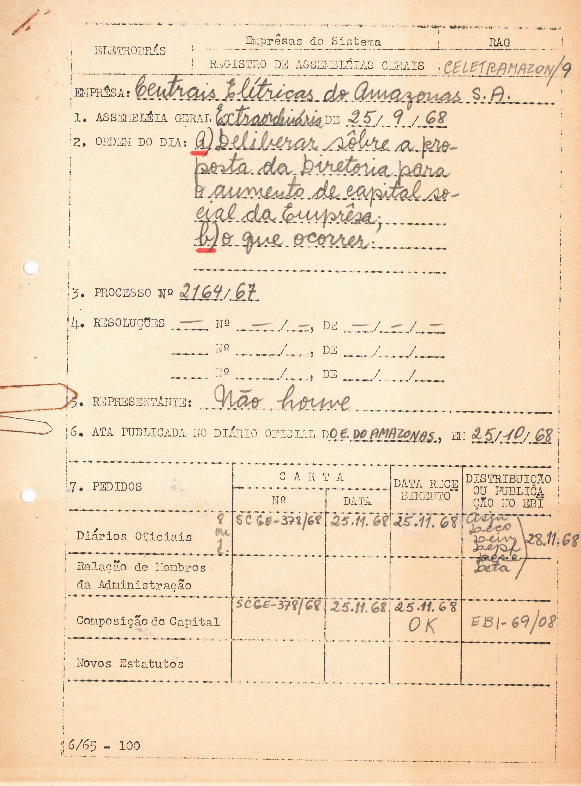 ELETROBRÁS
Emprêsas do Sistema
RAG
REGISTRO DE ASSEMBLÉIAS GERAIS
CELETRAMAZON/9
EMPRÊSA: Centrais Elétricas do Amazonas S.A.
1. ASSEMBLÉIA GERAL Extraordinária DE 25/9/68
2. ORDEM DO DIA: a) Deliberar sôbre a pro-
posta da Diretoria para
o aumento de capital so-
cial da Emprêsa;
b) o que ocorrer.
3. PROCESSO Nº 2164/67
4. RESOLUÇÕES — Nº —/—, DE —/—/—
Nº / , DE / /
Nº / , DE / /
5. REPRESENTANTE: Não houve
6. ATA PUBLICADA NO DIÁRIO OFICIAL DO E. DO AMAZONAS, EM 25/10/68
7. PEDIDOS
C A R T A
Nº
DATA
DATA RECE
BIMENTO
DISTRIBUIÇÃO
OU PUBLICA
ÇÃO NO EBI
Diários Oficiais
8
ou
SCGE-378/68 25.11.68 25.11.68
28.11.68
Relação de Membros
da Administração
Composição do Capital
SCGE-378/68 25.11.68 25.11.68
OK
EBI-69/08
Novos Estatutos
6/65 - 100